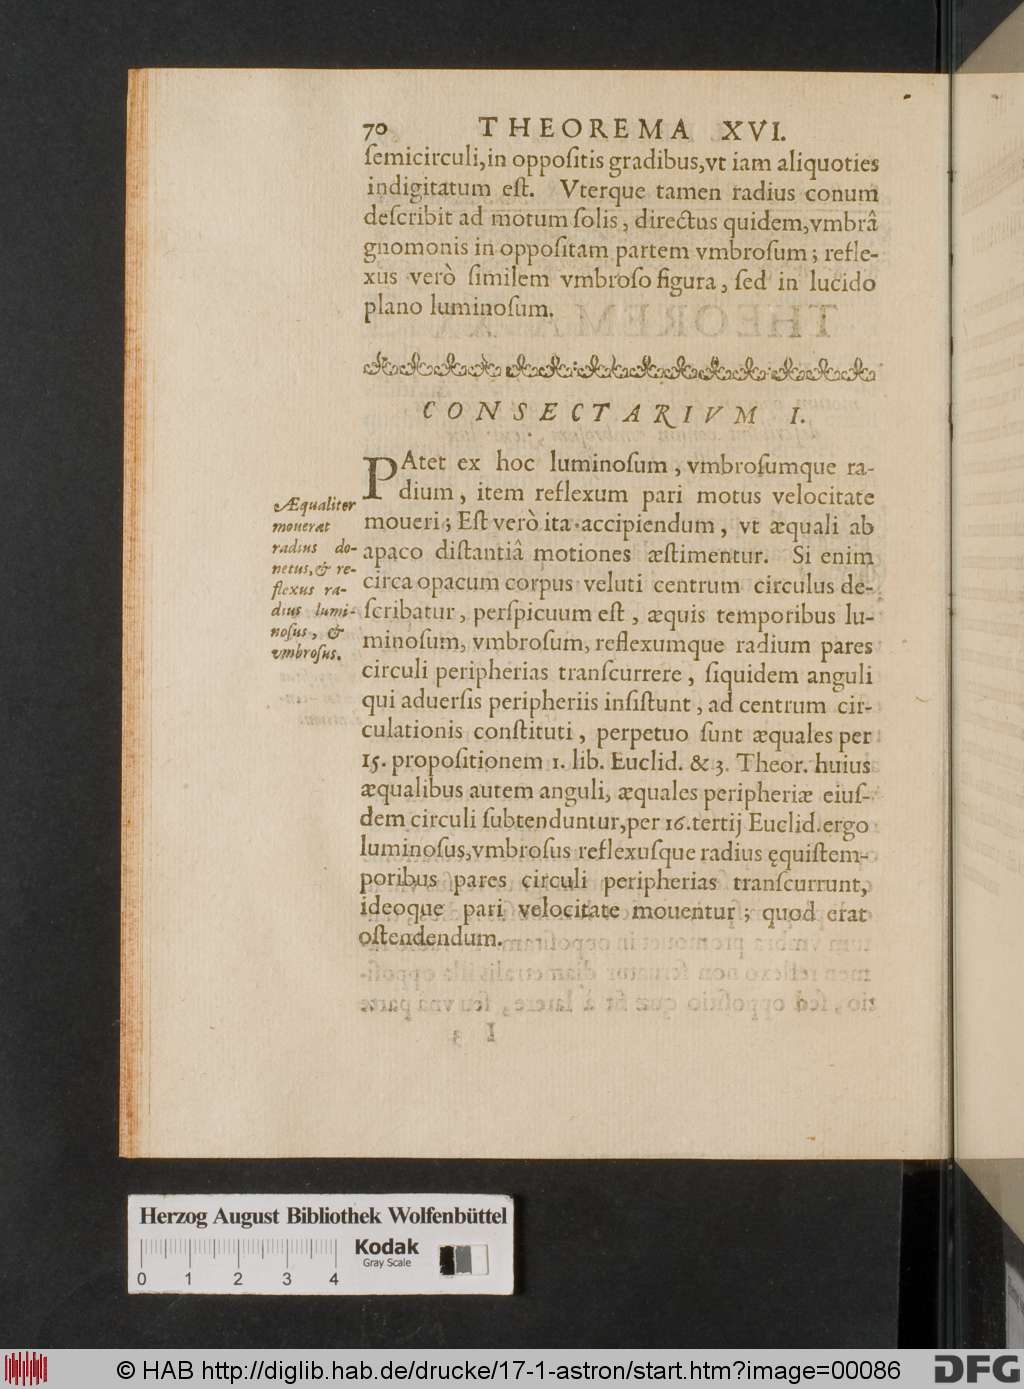 70 THEOREMA XVI.
ſemicirculi,in oppoſitis gradibus,vt iam aliquoties
indigitatum eſt. Vterque tamen radius conum
deſcribit ad motum ſolis, directus quidem,vmbrâ
gnomonis in oppoſitam partem vmbroſum; refle-
xus verò ſimilem vmbroſo figura, ſed in lucido
plano luminoſum.
CONSECTARIVM I.
PAtet ex hoc luminoſum, vmbroſumque ra-
dium, item reflexum pari motus velocitate
moueri; Eſt verò ita accipiendum, vt æquali ab
apaco diſtantiâ motiones æſtimentur. Si enim
circa opacum corpus veluti centrum circulus de-
ſcribatur, perſpicuum eſt, æquis temporibus lu-
minoſum, vmbroſum, reflexumque radium pares
circuli peripherias tranſcurrere, ſiquidem anguli
qui aduerſis peripheriis inſiſtunt, ad centrum cir-
culationis conſtituti, perpetuo ſunt æquales per
15. propoſitionem 1. lib. Euclid. & 3. Theor. huius
æqualibus autem anguli, æquales peripheriæ eiuſ-
dem circuli ſubtenduntur,per 16.tertij Euclid.ergo
luminoſus,vmbroſus reflexuſque radius ęquiſtem-
poribus pares circuli peripherias tranſcurrunt,
ideoque pari velocitate mouentur; quod erat
oſtendendum.
Æqualiter
mouerãt
radius do-
netus, & re-
flexus ra-
dius lumi-
noſus, &
vmbroſus.
Herzog August Bibliothek Wolfenbüttel
Kodak
Gray Scale
0 1 2 3 4
© HAB http://diglib.hab.de/drucke/17-1-astron/start.htm?image=00086
DFG